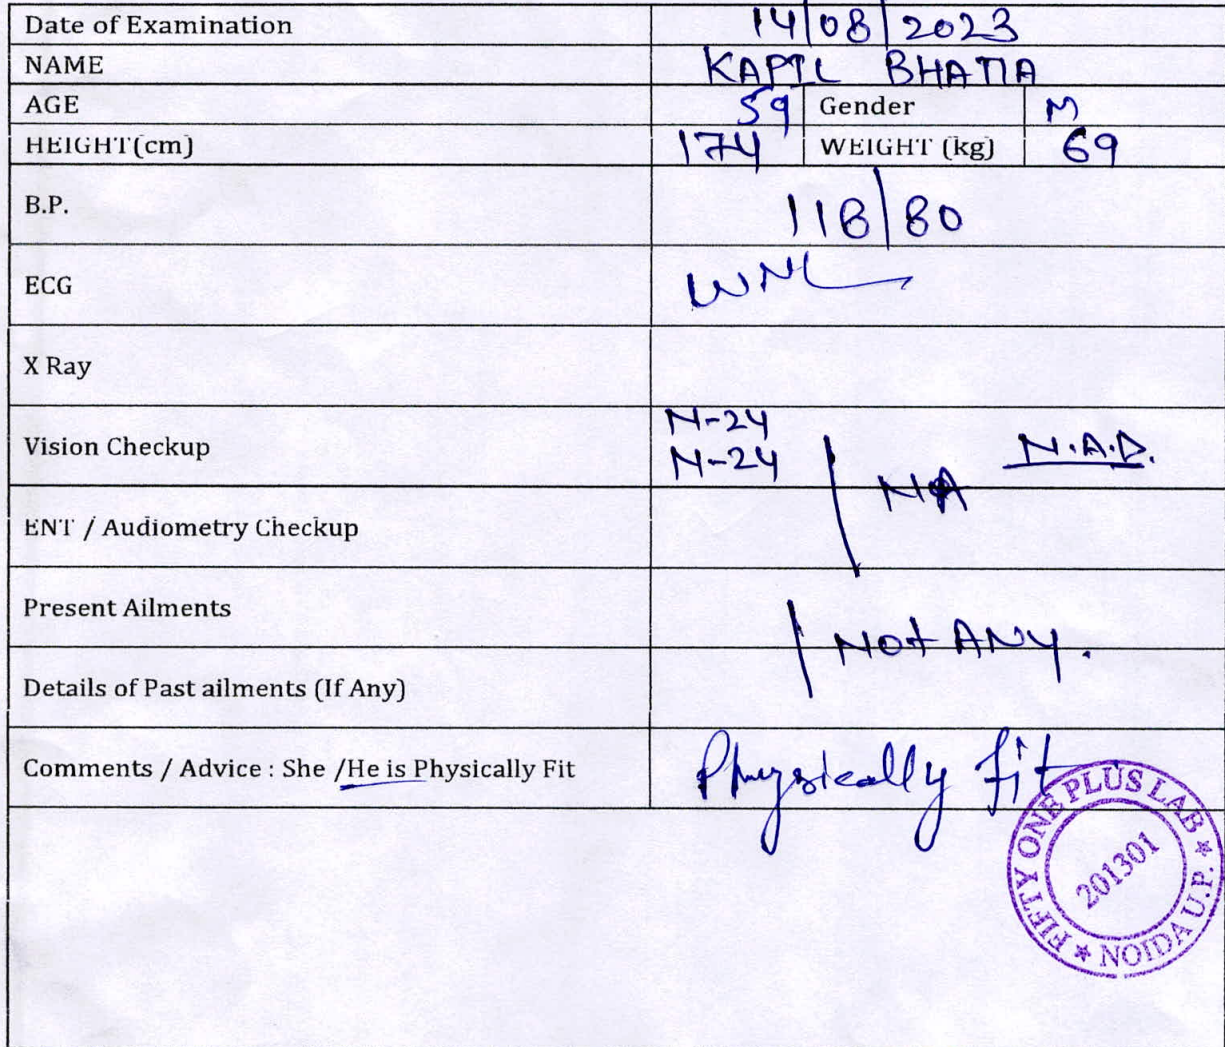 Date of Examination 14/08/2023
NAME KAPIL BHATIA
AGE 59 Gender M
HEIGHT(cm) 174 WEIGHT (kg) 69
B.P. 118/80
ECG WNL
X Ray
N-24
Vision Checkup N-24 N.A.D.
NA
ENT / Audiometry Checkup
Present Ailments
Not ANY.
Details of Past ailments (If Any)
Comments / Advice : She /He is Physically Fit Physically fit
FIFTY ONE PLUS LAB
201301
* NOIDA U.P. *